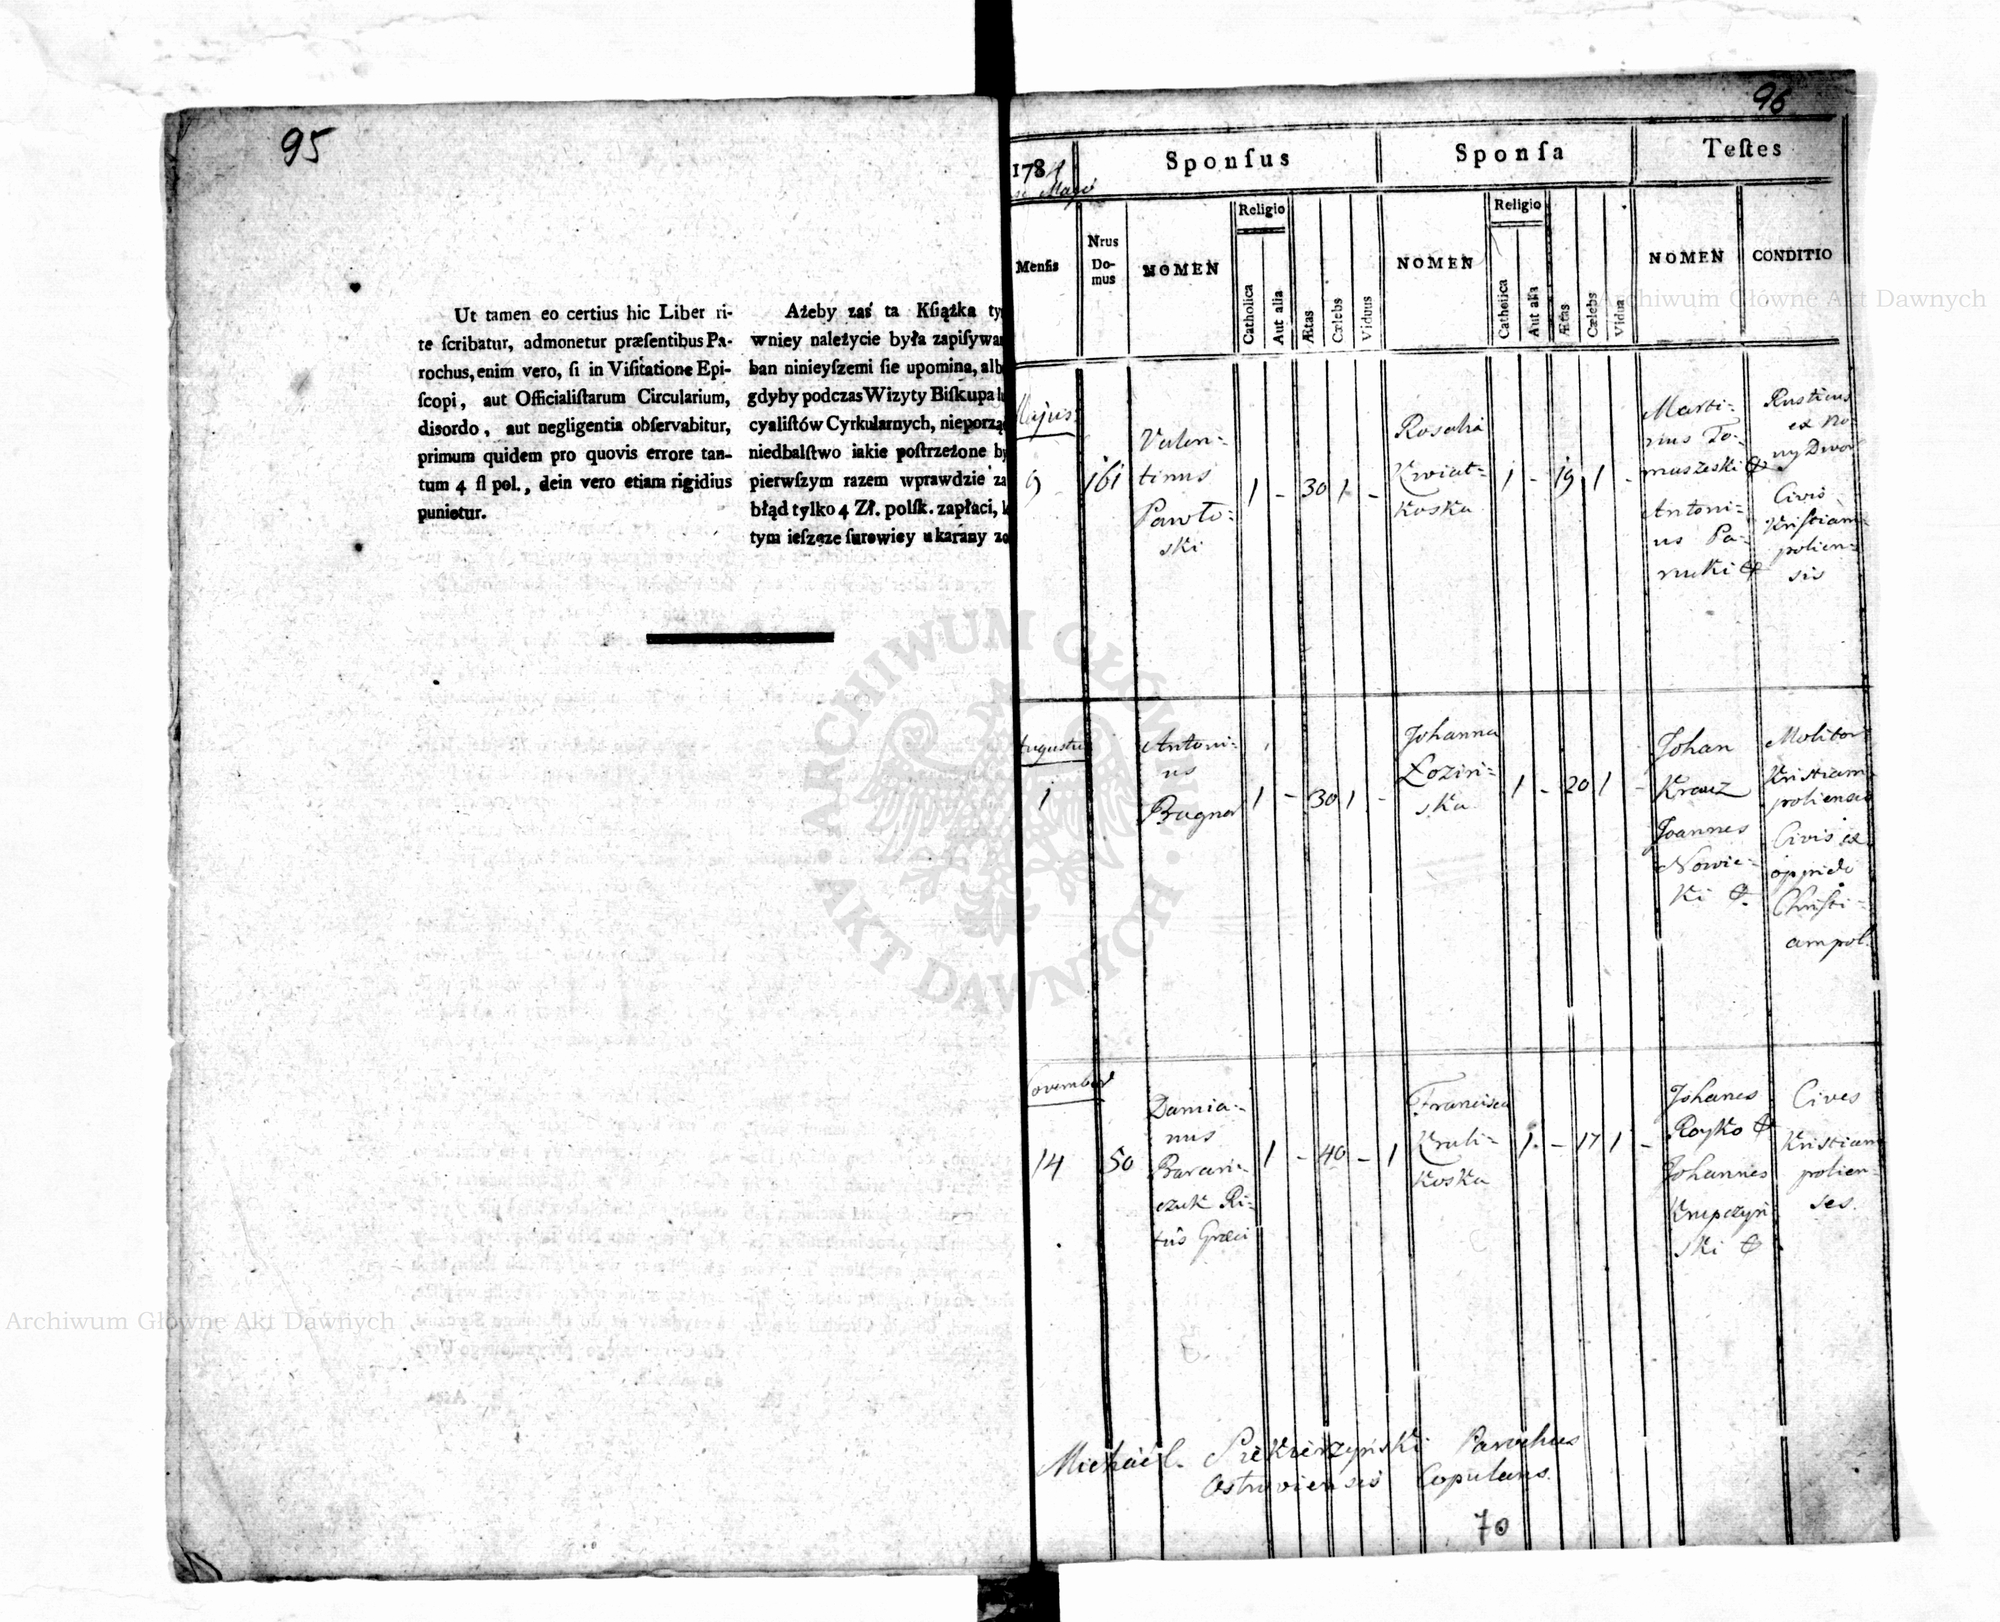 95
Ut tamen eo certius hic Liber ri-
te ſcribatur, admonetur præſentibus Pa-
rochus, enim vero, ſi in Viſitatione Epi-
ſcopi, aut Officialiſtarum Circularium,
disordo, aut negligentia obſervabitur,
primum quidem pro quovis errore tan-
tum 4 fl pol., dein vero etiam rigidius
punietur.
Ażeby zaś ta Kſiążka ty
wniey należycie była zapiſywa
ban ninieyſzemi ſie upomina, alb
gdyby podczas Wizyty Biſkupa
cyaliſtów Cyrkularnych, nieporzą
niedbalſtwo iakie poſtrzeżone b
pierwſzym razem wprawdzie za
błąd tylko 4 Zł. polſk. zapłaci,
tym ieſzcze ſurowiey ukarany zo
96
178
Majo
Sponſus
Sponſa
Teſtes
Menſis
Nrus
Do-
mus
NOMEN
Religio
Catholica
Aut alia
Ætas
Cælebs
Viduus
NOMEN
Religio
Catholica
Aut alia
Ætas
Cælebs
Vidua
NOMEN
CONDITIO
Majus
9
161
Valen-
tinus
Pawło-
ski
1 - 30 1 -
Rosalia
Kwiat-
koska
1 - 19 1 -
Marti-
nus To-
maszeski
Antoni-
us Pa-
rucki
Rusticus
ex No-
wy Dwor
Civis
Kristiam-
polien-
sis
Augustus
1
Antoni-
us
Bagner
1 - 30 1 -
Johanna
Łozin-
ska
1 - 20 1 -
Johan
Krauz
Joannes
Nowic-
ki
Molitor
Kristiam-
poliensis
Civis ex
oppido
Christi-
ampol.
November
14
50
Damia-
nus
Baran-
czuk Ri-
tus Græci
1 - 40 - 1
Francisca
Kruli-
koska
1 - 17 1 -
Johanes
Royko
Johannes
Krupczyn
ski
Cives
Kristiam
polien-
ses.
Michael Siekierzyński Parochus
Ostroviensis Copulans.
70
ARCHIWUM GŁÓWNE AKT DAWNYCH
Archiwum Główne Akt Dawnych
Archiwum Główne Akt Dawnych